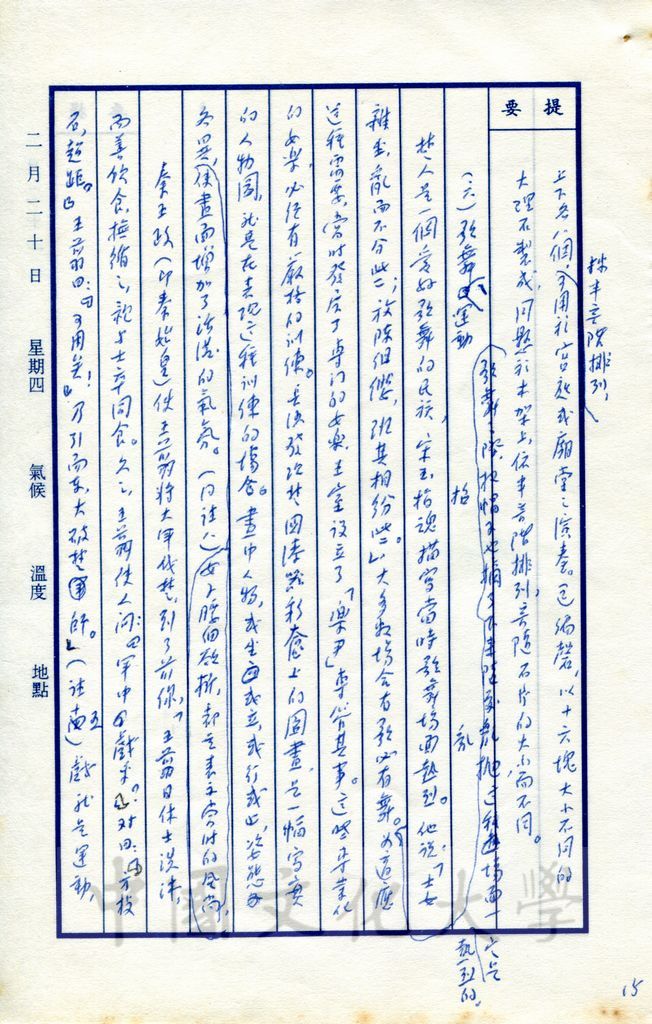 提要
按半音階排列,
上下各八個,可用於宮廷或廟堂之演奏。編磬,以十六塊大小不同的
大理石製成,同懸於木架上,依半音階排列,音隨石片的大小而不同。
(六)歌舞運動
歌舞之際,把帽子也摘了下來 這種場面一定是熱烈的。
楚人是一個愛好歌舞的民族,宋玉招魂描寫當時歌舞場面熱烈。他說「士女
雜坐,亂而不分些;放陳組纓,班其相紛些。」大多數場合有歌必有舞。為適應
這種需要,當時發展了專門的女樂,王室設立了「樂尹」專管其事。這些專業化
的女樂,必須有嚴格的訓練。長沙發現楚國漆器彩奩上的圖畫,是一幅寫實
的人物圖,就是在表現這種訓練的場合。畫中人物,或坐或立,或行或止,姿態
各異,使畫面增加了活潑的氣氛。女人腰細欲斷,都是表示當時的風尚,
秦王政(即秦始皇)使王翦將大軍伐楚,到了前線,「王翦日休士洗沐,
而善飲食,撫循之,親與士卒同食。久之,王翦使人問:『軍中戲乎?』對曰:『方投
石,超距。』王翦曰:『可用矣!』乃引而東,大破楚師。」戲就是運動,
二月二十日 星期四 氣候 溫度 地點
中國文化大學
15